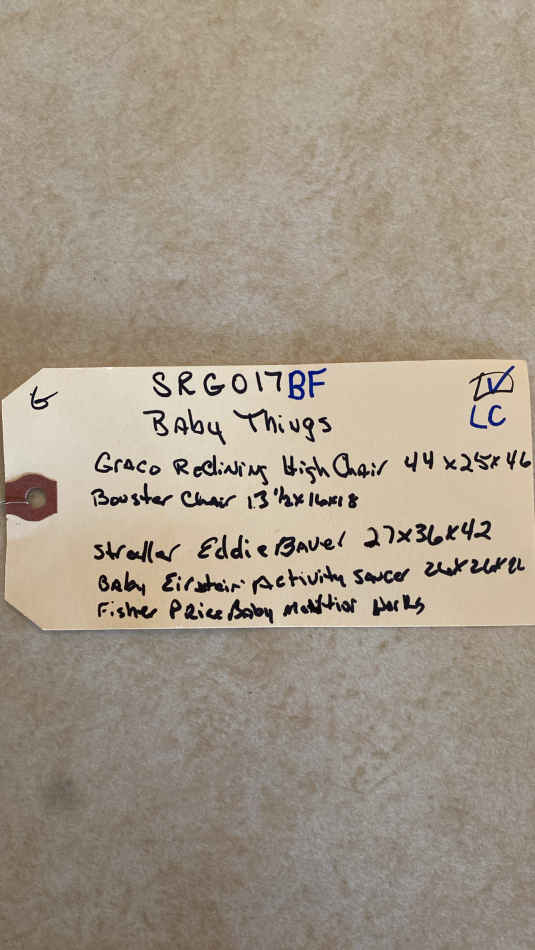 SRG017BF
Baby Things
LC
Graco Reclining High Chair 44x25x46
Booster Chair 13 1/2x16x18
Stroller Eddie Bauer 27x36x42
Baby Einstein Activity Saucer
Fisher Price Baby Works